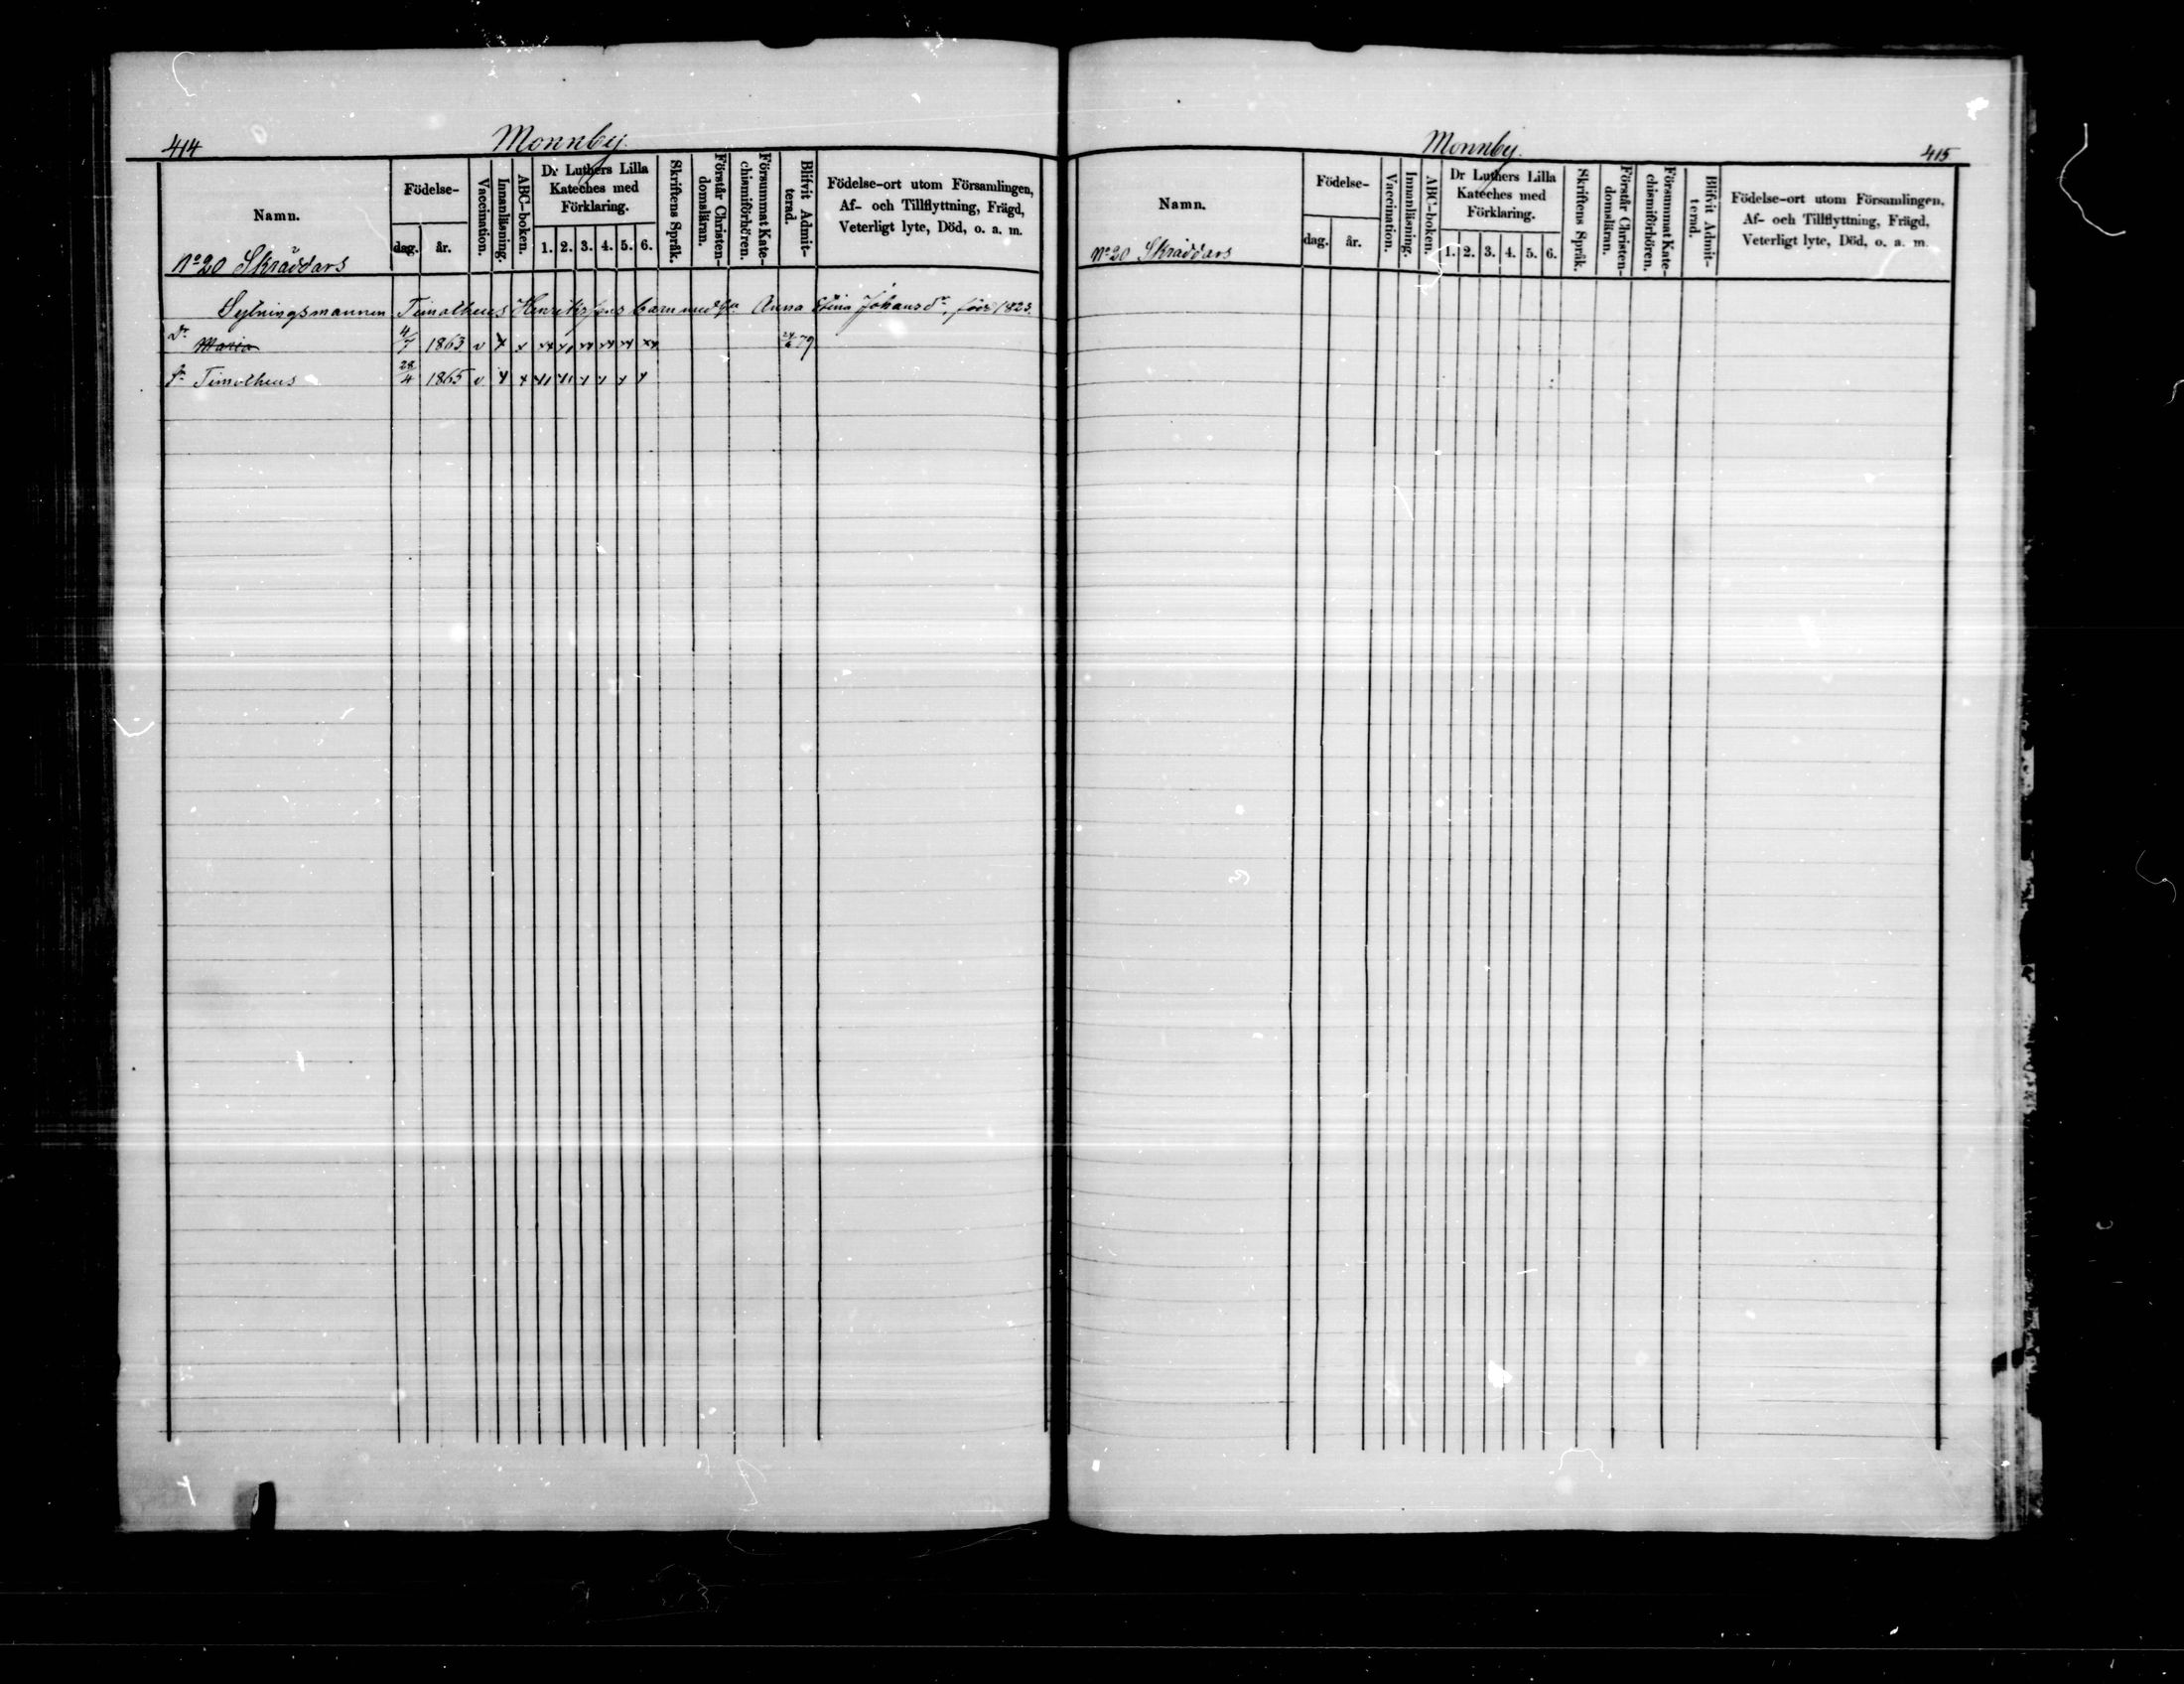 414
Monnby.
Namn.
Födelse-
dag. år.
Vaccination.
Innanläsning.
ABC-boken.
Dr Luthers Lilla
Kateches med
Förklaring.
1. 2. 3. 4. 5. 6.
Skriftens Språk.
Förstår Christen-
domsläran.
Försummat Kate-
chismiförhören.
Blifvit Admit-
terad.
Födelse-ort utom Församlingen,
Af- och Tillflyttning, Frägd,
Veterligt lyte, Död, o. a. m.
No 20 Skräddars
Sytningsmannen Timotheus Henrikssons barn med Anna Stina Johansdr. född 1823.
Dr Maria 4/7 1863 v x x 79
Sn Timotheus 28/4 1865 v x x
Monnby.
415
Namn.
Födelse-
dag. år.
Vaccination.
Innanläsning.
ABC-boken.
Dr Luthers Lilla
Kateches med
Förklaring.
1. 2. 3. 4. 5. 6.
Skriftens Språk.
Förstår Christen-
domsläran.
Försummat Kate-
chismiförhören.
Blifvit Admit-
terad.
Födelse-ort utom Församlingen,
Af- och Tillflyttning, Frägd,
Veterligt lyte, Död, o. a. m.
No 20 Skräddars